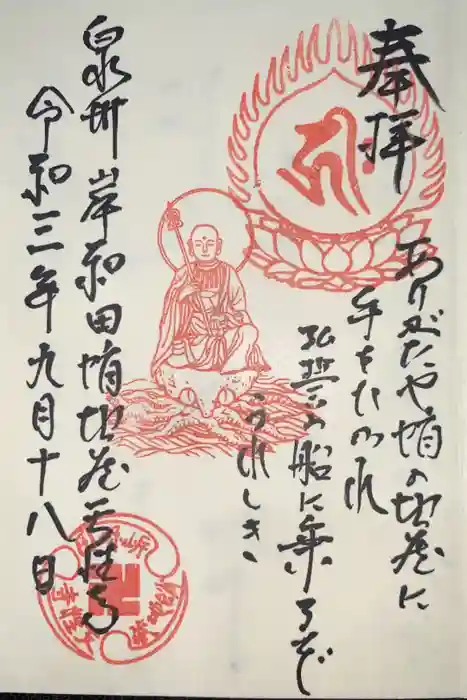 奉拝
ありがたや蛸の地蔵に
手をたのれ
弘誓の船に乗るぞ
うれしき
泉州岸和田蛸地蔵天性寺
令和三年九月十八日